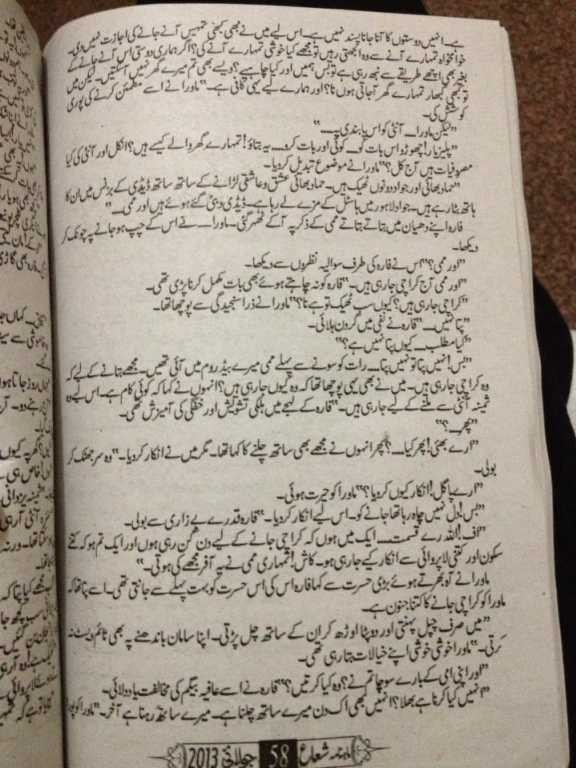 ہے۔ انہیں دوستوں کا آنا جانا پسند نہیں ہے۔ اس لیے میں نے بھی کبھی تمہیں آنے جانے کی اجازت نہیں دی۔
خوامخواہ تمہارے آنے سے وہ الجھتی رہیں تو مجھے کیا خوشی تمہارے آنے کی؟ اگر ہماری دوستی اس آنے جانے کے
بغیر بھی اچھے طریقے سے نبھ رہی ہے تو بس ہمیں اور کیا چاہیے؟ ویسے بھی تم میرے گھر نہیں آسکتیں۔ لیکن میں
تو کبھی کبھار تمہارے گھر آجاتی ہوں نا؟ اور ہمارے لیے یہی کافی ہے۔" ماورا نے اسے مطمئن کرنے کی پوری
کوشش کی۔
"لیکن ماورا۔۔۔ آنٹی کو اس پابندی پہ۔۔۔"
"پلیز یار! چھوڑو اس بات کو۔ کوئی اور بات کرو۔۔۔ یہ بتاؤ! تمہارے گھر والے کیسے ہیں؟ انکل اور آنٹی کی کیا
مصروفیات ہیں آج کل؟" ماورا نے موضوع تبدیل کردیا۔
"حماد بھائی اور جواد دونوں ٹھیک ہیں۔ حماد بھائی عشق و عاشقی لڑانے کے ساتھ ساتھ ڈیڈی کے بزنس میں ان کا
ہاتھ بٹا رہے ہیں۔ جواد لاہور میں ہاسٹل کے مزے لے رہا ہے۔ ڈیڈی دبئی گئے ہوئے ہیں اور ممی۔۔۔"
فارہ اپنے دھیان میں بتاتے بتاتے ممی کے ذکر پہ آکے ٹھہر گئی۔ ماورا۔۔۔ نے اس کے چپ ہوجانے پہ چونک کر
دیکھا۔
"اور ممی؟" اس نے فارہ کی طرف سوالیہ نظروں سے دیکھا۔
"اور ممی آج کراچی جارہی ہیں۔" فارہ کو نہ چاہتے ہوئے بھی بات مکمل کرنا پڑی تھی۔
"کراچی جارہی ہیں؟ کیوں سب ٹھیک تو ہے نا؟" ماورا نے ذرا سنجیدگی سے پوچھا تھا۔
"پتا نہیں۔۔۔" فارہ نے نفی میں گردن ہلائی۔
"کیا مطلب۔۔۔ کیوں پتا نہیں ہے؟"
"بس! نہیں پتا تو نہیں پتا۔۔۔ رات کو سونے سے پہلے ممی میرے بیڈ روم میں آئی تھیں۔ مجھے بتانے کے لیے کہ
وہ کراچی جارہی ہیں۔ میں نے بھی یہی پوچھا تھا کہ وہ کیوں جارہی ہیں؟ انہوں نے کہا کہ کوئی کام ہے۔ اس لیے وہ
ثمینہ آنٹی سے ملنے کے لیے جارہی ہیں۔" فارہ کے لہجے میں ہلکی تشویش اور خفگی کی آمیزش تھی۔
"پھر۔۔۔؟"
"ارے بھئی! پھر کیا۔۔۔؟ پھر انہوں نے مجھے بھی ساتھ چلنے کا کہا تھا۔ مگر میں نے انکار کردیا۔" وہ سر جھٹک کر
بولی۔
"ارے پاگل! انکار کیوں کردیا؟" ماورا کو حیرت ہوئی۔
"بس! دل نہیں چاہ رہا تھا جانے کو۔ اس لیے انکار کردیا۔" فارہ قدرے بے زاری سے بولی۔
"اف! اللہ رے قسمت۔۔۔ ایک میں ہوں کہ کراچی جانے کے لیے دن گن رہی ہوں اور ایک تم ہو کہ کتنے
سکون اور کتنی لاپروائی سے انکار کیے جارہی ہو۔ کاش! تمہاری ممی نے یہ آفر مجھے کی ہوتی۔"
ماورا نے آہ بھرتے ہوئے بڑی حسرت سے کہا فارہ اس کی اس حسرت کو بہت پہلے سے جانتی تھی۔ اسے پتا تھا کہ
ماورا کو کراچی جانے کا کتنا جنون ہے۔
"میں صرف چپل پہنتی اور دوپٹا اوڑھ کر ان کے ساتھ چل پڑتی۔ اپنا سامان باندھنے پہ بھی ٹائم ویسٹ نہ
کرتی۔" ماورا خوشی خوشی اپنے خیالات بتا رہی تھی۔
"اور اپنی امی کے بارے سوچا تم نے؟ وہ کیا کرتیں؟" فارہ نے اسے عافیہ بیگم کی مخالفت یاد دلائی۔
"انہیں کیا کرنا ہے بھلا؟ انہیں بھی اک دن میرے ساتھ چلنا ہے۔ میرے ساتھ رہنا ہے آخر۔" ماورا کو پورا
ماہنامہ شعاع 58 جولائی 2013